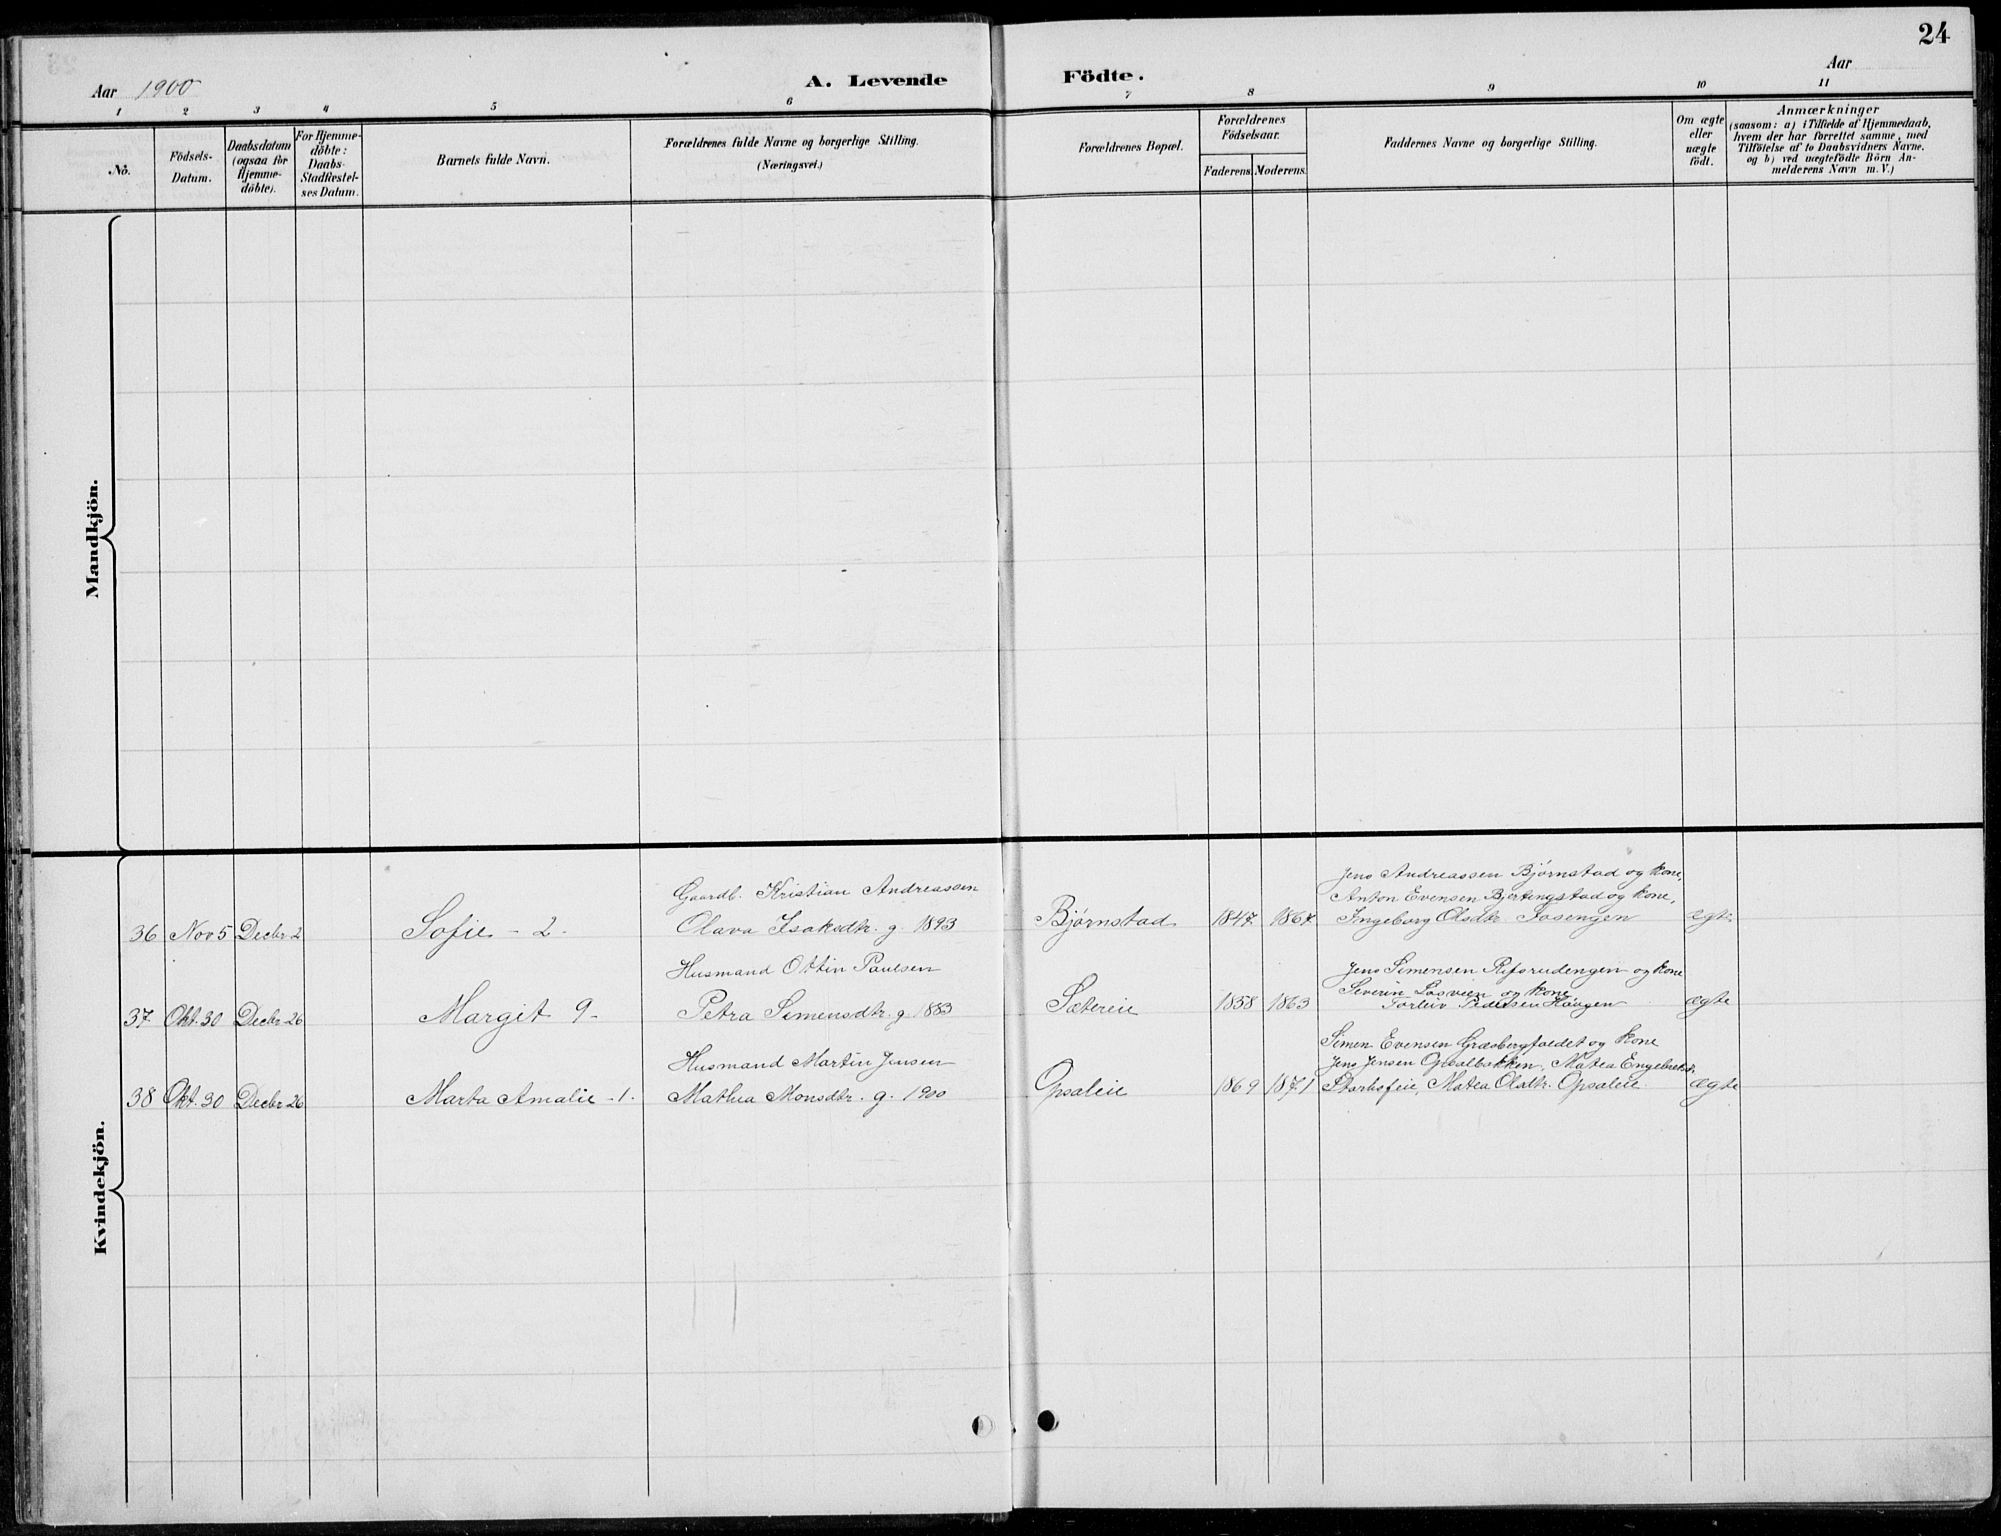 24
Aar 1900
A. Levende Födte.
Aar
1 2 3 4 5 6 7 8 9 10 11
No.
Födsels-Datum.
Daabsdatum (ogsaa for Hjemme-döbte).
For Hjemme-döbte: Daabs-Stadfæstel-ses Datum.
Barnets fulde Navn.
Forældrenes fulde Navne og borgerlige Stilling. (Næringsvei.)
Forældrenes Bopæl.
Forældrenes Födselsaar.
Faderens. Moderens.
Faddernes Navne og borgerlige Stilling.
Om ægte eller uægte födt.
Anmærkninger
(saasom: a) i Tilfælde af Hjemmedaab,
hvem der har forrettet samme, med
Tilföielse af to Daabsvidners Navne.
og b) ved uægtefödte Börn An-
melderens Navn m.V.)
Mandkjön.
Kvindekjön.
Gaardb. Kristian Andreassen
Jens Andreassen Bjørnstad og kone,
Anton Evensen Bjertingstad og kone,
36 Nov 5 Decbr 2 Sofie - 2 - Olava Isaksdtr. g. 1893 Bjørnstad 1847 1867 Ingeborg Olsdtr. Josengen ægte
Husmand Ottin Paulsen
Jens Simensen Riforudengen og kone
Severin og kone
37 Okt. 30 Decbr 26 Margit 9 - Petra Simensdtr. g. 1883 Sætereie 1858 1863 Torleiv Pedersen Haugen ægte
Husmand Martin Jensen
Simen Evensen Græsbergfaldet og kone
Jens Jensen Opsalbakken, Matea Engebretsd.
38 Okt. 30 Decbr 26 Marta Amalie - 1 - Mathea Monsdtr. g. 1900 Opsaleie 1869 1871 Storhofeie, Matea Olsdtr. Opsaleie ægte